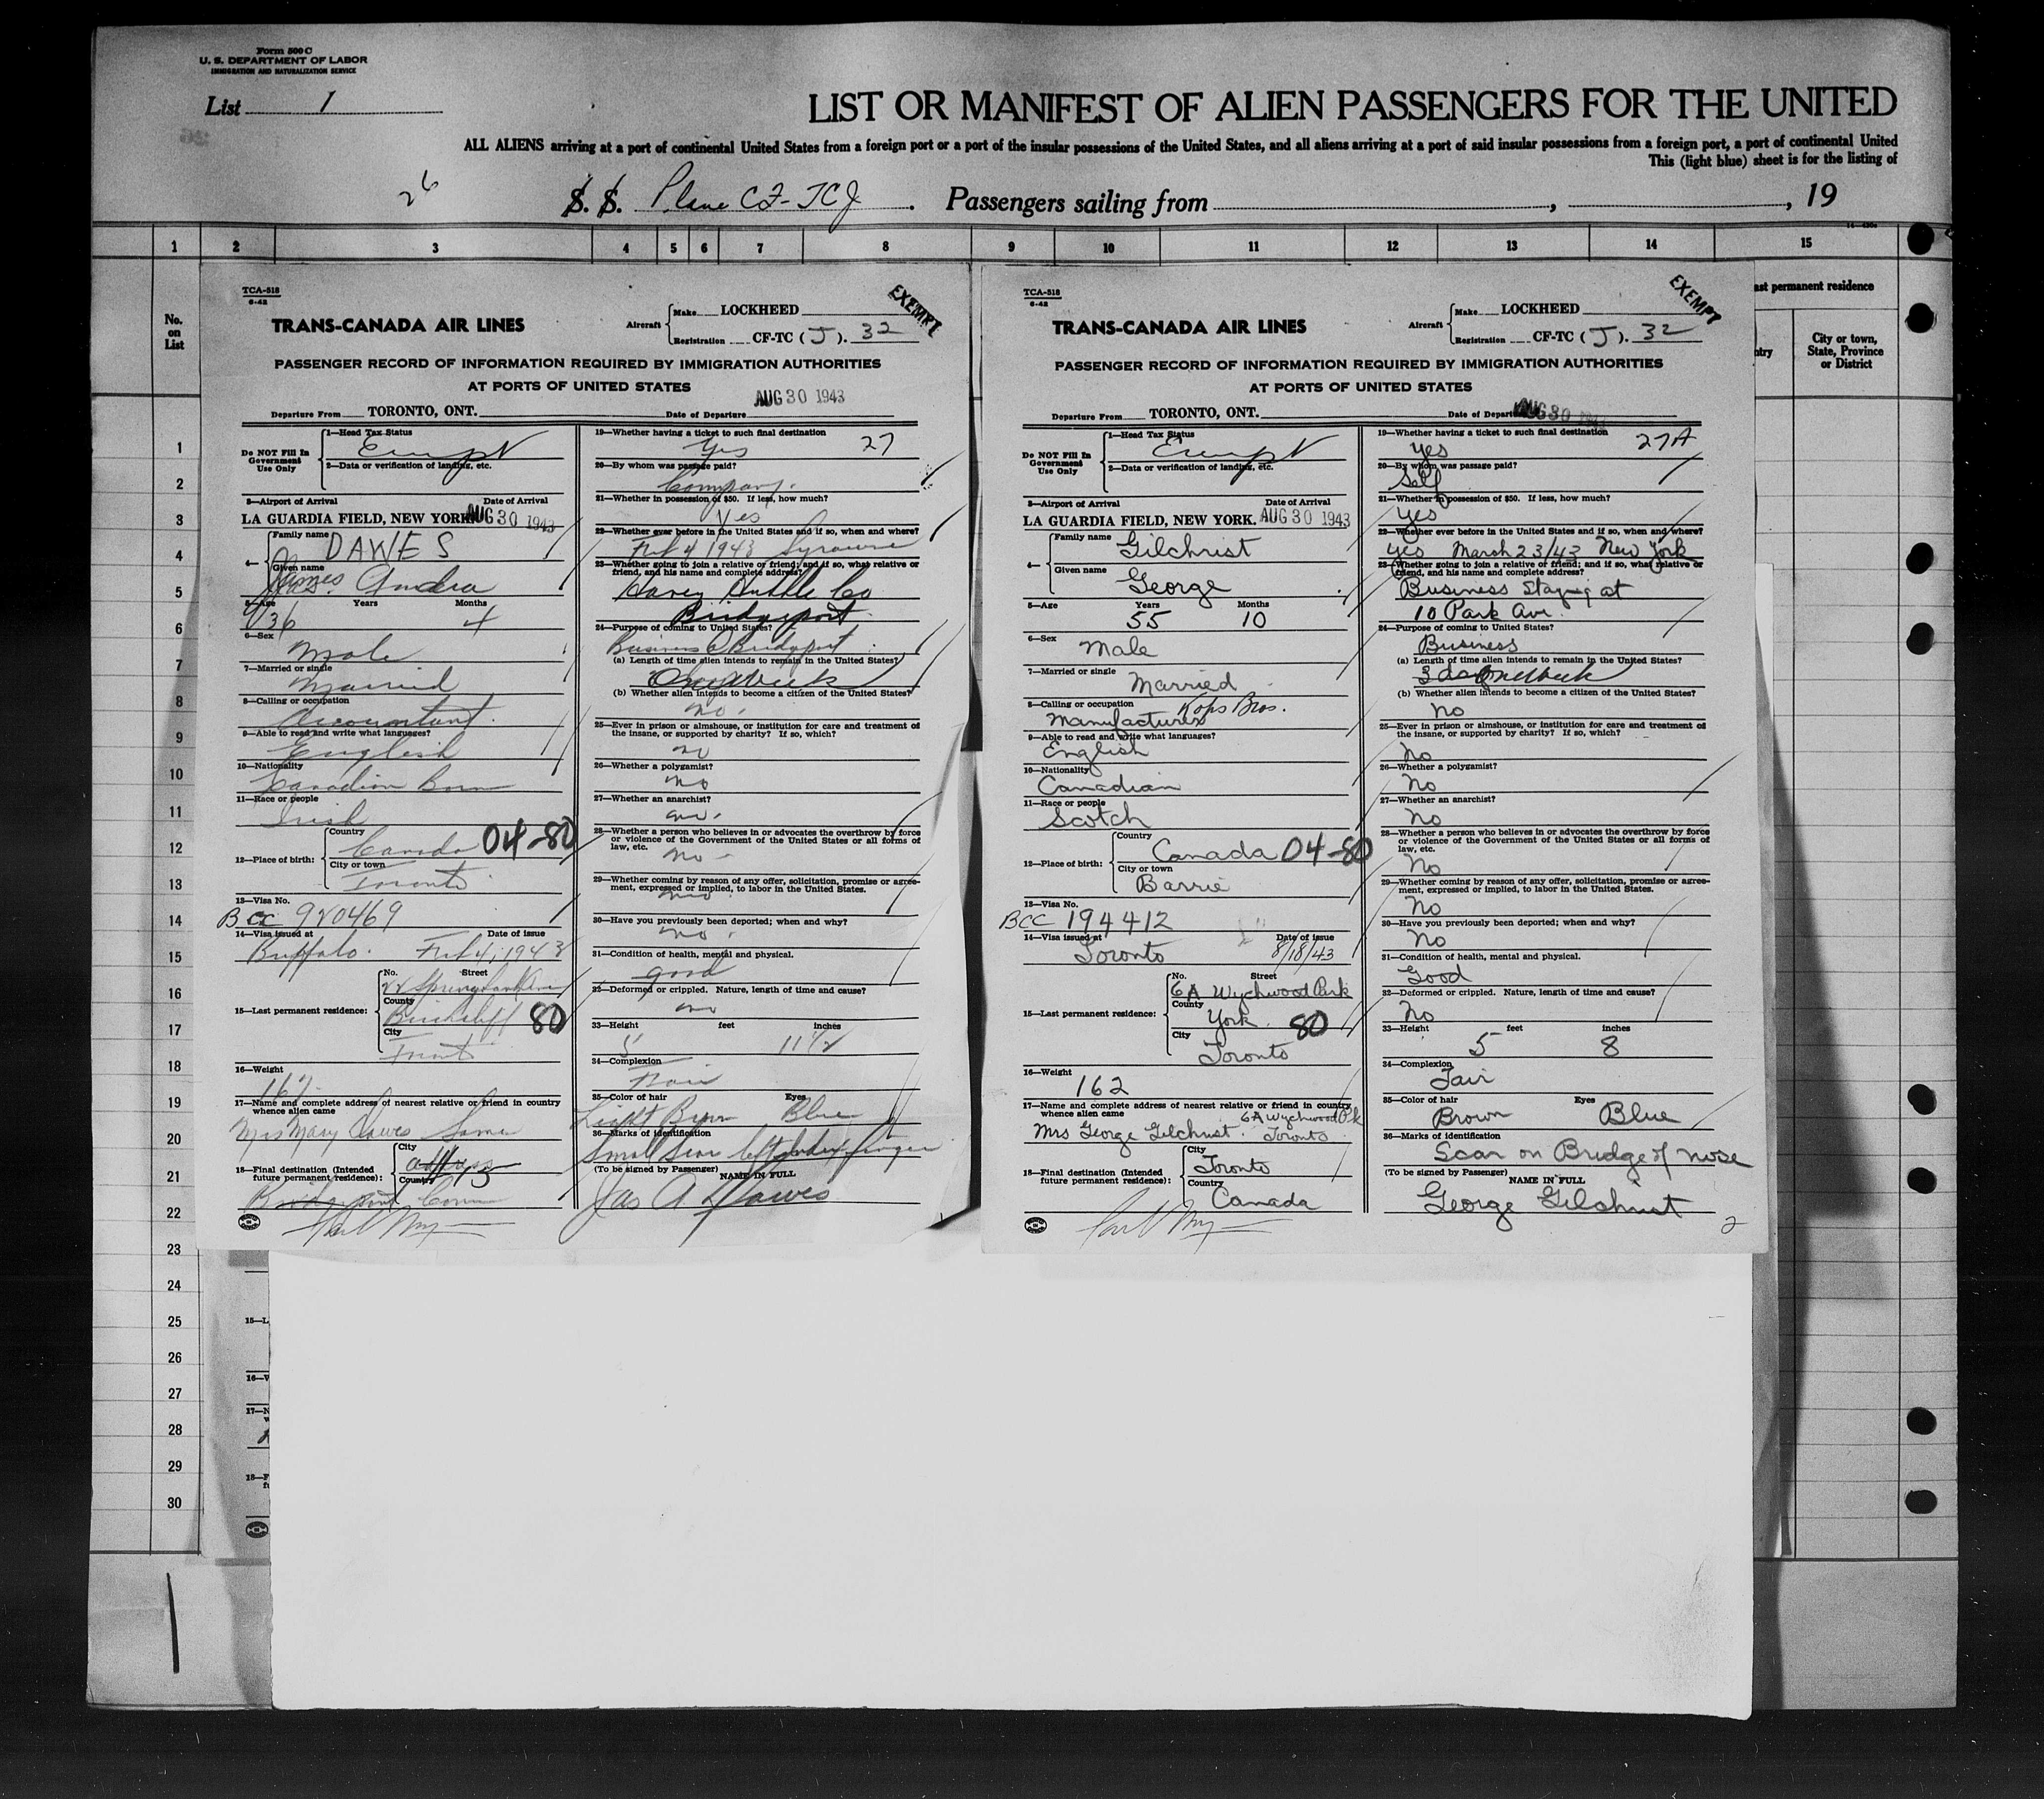 Form 500 C
U. S. DEPARTMENT OF LABOR
IMMIGRATION AND NATURALIZATION SERVICE
List 1
LIST OR MANIFEST OF ALIEN PASSENGERS FOR THE UNITED
ALL ALIENS arriving at a port of continental United States from a foreign port or a port of the insular possessions of the United States, and all aliens arriving at a port of said insular possessions from a foreign port, a port of continental United
This (light blue) sheet is for the listing of
26
S. S. Plane CF-TCJ . Passengers sailing from , , 19
1 2 3 4 5 6 7 8 9 10 11 12 13 14 15
No. on List
ast permanent residence
ntry
City or town, State, Province or District
1
2
3
4
5
6
7
8
9
10
11
12
13
14
15
16
17
18
19
20
21
22
23
24
25
26
27
28
29
30
TCA-518
6-42
EXEMPT
TRANS-CANADA AIR LINES
Aircraft
Make LOCKHEED
Registration CF-TC ( J ). 32
PASSENGER RECORD OF INFORMATION REQUIRED BY IMMIGRATION AUTHORITIES
AT PORTS OF UNITED STATES
Departure From TORONTO, ONT. Date of Departure AUG 30 1943
Do NOT Fill In Government Use Only
1—Head Tax Status
Exempt
2—Data or verification of landing, etc.
3—Airport of Arrival Date of Arrival
LA GUARDIA FIELD, NEW YORK. AUG 30 1943
4— Family name DAWES
Given name James Andrew
5—Age Years Months
36 4
6—Sex
Male
7—Married or single
Married
8—Calling or occupation
Accountant.
9—Able to read and write what languages?
English
10—Nationality
Canadian Born
11—Race or people
Irish
12—Place of birth: Country
Canada 04-80
City or town
Toronto
13—Visa No.
BCC 920469
14—Visa issued at Date of issue
Buffalo. Feb 4, 1943
15—Last permanent residence: No. Street
County
Birchcliff 80
City
Toronto
16—Weight
167
17—Name and complete address of nearest relative or friend in country whence alien came
Mrs Mary Dawes Same
18—Final destination (Intended future permanent residence): City
Country
Bridgeport Conn
19—Whether having a ticket to such final destination
Yes 27
20—By whom was passage paid?
Company.
21—Whether in possession of $50. If less, how much?
Yes
22—Whether ever before in the United States and if so, when and where?
Feb 4 1943 Syracuse
23—Whether going to join a relative or friend; and if so, what relative or friend, and his name and complete address?
Harvey Hubble Co
Bridgeport
24—Purpose of coming to United States?
Business Bridgeport
(a) Length of time alien intends to remain in the United States?
One Week
(b) Whether alien intends to become a citizen of the United States?
no.
25—Ever in prison or almshouse, or institution for care and treatment of the insane, or supported by charity? If so, which?
no
26—Whether a polygamist?
no
27—Whether an anarchist?
no.
28—Whether a person who believes in or advocates the overthrow by force or violence of the Government of the United States or all forms of law, etc.
no
29—Whether coming by reason of any offer, solicitation, promise or agreement, expressed or implied, to labor in the United States.
no.
30—Have you previously been deported; when and why?
no.
31—Condition of health, mental and physical.
good
32—Deformed or crippled. Nature, length of time and cause?
no
33—Height feet inches
5 11 1/2
34—Complexion
Fair
35—Color of hair Eyes
Light Brown Blue
36—Marks of identification
Small Scar left index finger
(To be signed by Passenger) NAME IN FULL
Jas A Dawes
TCA-518
6-42
EXEMPT
TRANS-CANADA AIR LINES
Aircraft
Make LOCKHEED
Registration CF-TC ( J ). 32
PASSENGER RECORD OF INFORMATION REQUIRED BY IMMIGRATION AUTHORITIES
AT PORTS OF UNITED STATES
Departure From TORONTO, ONT. Date of Departure AUG 30 1943
Do NOT Fill In Government Use Only
1—Head Tax Status
Exempt
2—Data or verification of landing, etc.
3—Airport of Arrival Date of Arrival
LA GUARDIA FIELD, NEW YORK. AUG 30 1943
4— Family name Gilchrist
Given name George
5—Age Years Months
55 10
6—Sex
Male
7—Married or single
Married
8—Calling or occupation Kops Bros.
Manufacturer
9—Able to read and write what languages?
English
10—Nationality
Canadian
11—Race or people
Scotch
12—Place of birth: Country
Canada 04-80
City or town
Barrie
13—Visa No.
BCC 194412
14—Visa issued at Date of issue
Toronto 8/18/43
15—Last permanent residence: No. Street
6A Wychwood Park
County
York 80
City
Toronto
16—Weight
162
17—Name and complete address of nearest relative or friend in country whence alien came
6A Wychwood Pk
Mrs George Gilchrist. Toronto
18—Final destination (Intended future permanent residence): City
Toronto
Country
Canada
19—Whether having a ticket to such final destination
Yes 27A
20—By whom was passage paid?
Self
21—Whether in possession of $50. If less, how much?
Yes
22—Whether ever before in the United States and if so, when and where?
yes March 23/43 New York
23—Whether going to join a relative or friend; and if so, what relative or friend, and his name and complete address?
Business Staying at
10 Park Ave.
24—Purpose of coming to United States?
Business
(a) Length of time alien intends to remain in the United States?
3 days One Week
(b) Whether alien intends to become a citizen of the United States?
No
25—Ever in prison or almshouse, or institution for care and treatment of the insane, or supported by charity? If so, which?
No
26—Whether a polygamist?
No
27—Whether an anarchist?
No
28—Whether a person who believes in or advocates the overthrow by force or violence of the Government of the United States or all forms of law, etc.
No
29—Whether coming by reason of any offer, solicitation, promise or agreement, expressed or implied, to labor in the United States.
No
30—Have you previously been deported; when and why?
No
31—Condition of health, mental and physical.
Good
32—Deformed or crippled. Nature, length of time and cause?
No
33—Height feet inches
5 8
34—Complexion
Fair
35—Color of hair Eyes
Brown Blue
36—Marks of identification
Scar on Bridge of nose
(To be signed by Passenger) NAME IN FULL
George Gilchrist
2